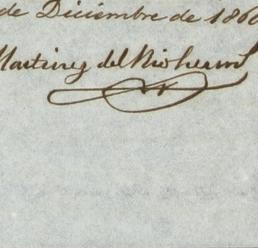 de Diciembre de 186
Martinez del Rio herm